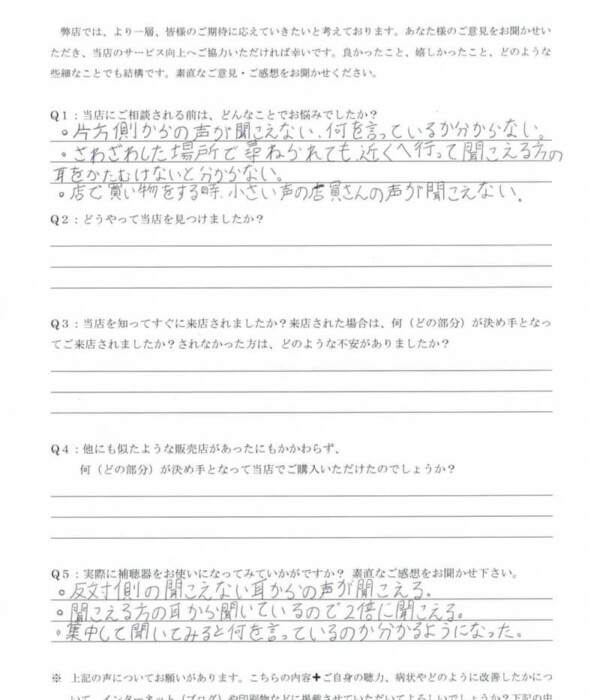 弊店では、より一層、皆様のご期待に応えていきたいと考えております。あなた様のご意見をお聞かせい
ただき、当店のサービス向上へご協力いただければ幸いです。良かったこと、嬉しかったこと、どのような
些細なことでも結構です。素直なご意見・ご感想をお聞かせください。
Q1：当店にご相談される前は、どんなことでお悩みでしたか？
。片方側からの声が聞こえない、何を言っているか分からない。
・さわざわした場所で尋ねられても近くへ行って聞こえる方の
耳をかたむけないと分からない。
。店で買い物をする時、小さい声の店員さんの声が聞こえない。
Q2：どうやって当店を見つけましたか？
Q3：当店を知ってすぐに来店されましたか？来店された場合は、何（どの部分）が決め手となっ
てご来店されましたか？されなかった方は、どのような不安がありましたか？
Q4：他にも似たような販売店があったにもかかわらず、
何（どの部分）が決め手となって当店でご購入いただけたのでしょうか？
Q5：実際に補聴器をお使いになってみていかがですか？ 素直なご感想をお聞かせ下さい。
。反対側の聞こえない耳からの声が聞こえる。
。聞こえる方の耳から聞いているので2倍に聞こえる。
・集中して聞いてみると何を言っているのか分かるようになった。
※ 上記の声についてお願いがあります。こちらの内容✚ご自身の聴力、病状やどのように改善したかにつ
いて、インターネット（ブログ）や印刷物などに掲載させていただいてよろしいでしょうか？下記の中